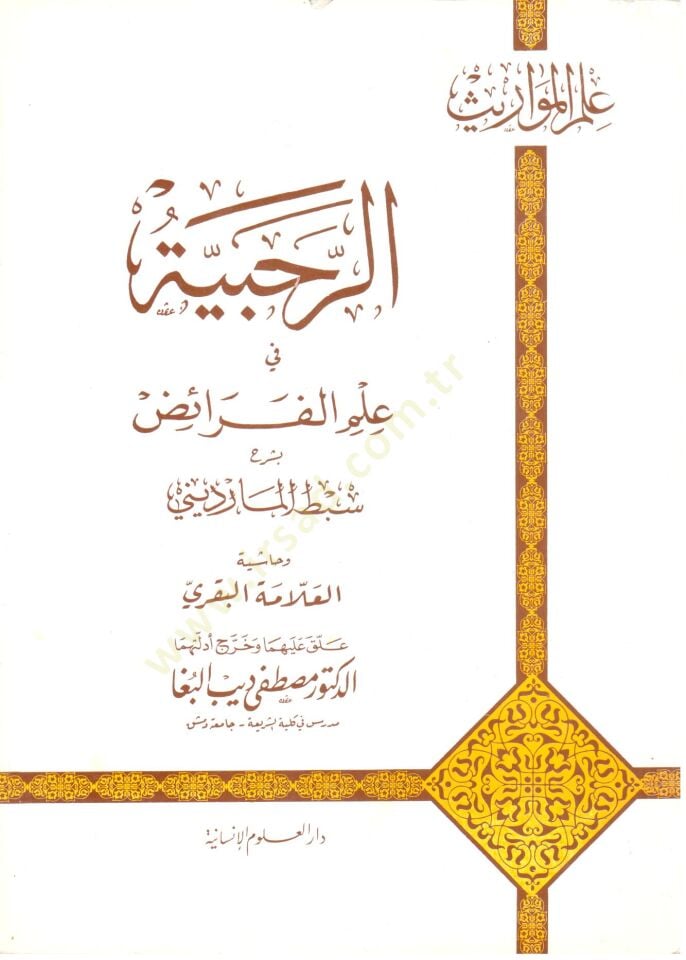 علم المواريث
الرَّحَبِيَّةُ
في
عِلْمِ الفَرَائِضِ
بشرح
سِبْطِ المَارِدِيني
وحاشية
العَلّامَة البَقَرِيّ
عَلّق عَليْهمَا وَخَرَّج أدلّتهمَا
الدكتور مصطفى ديب البُغا
مدرس في كلية الشريعة - جامعة دمشق
دار العلوم الإنسانية
www.irsad.com.tr